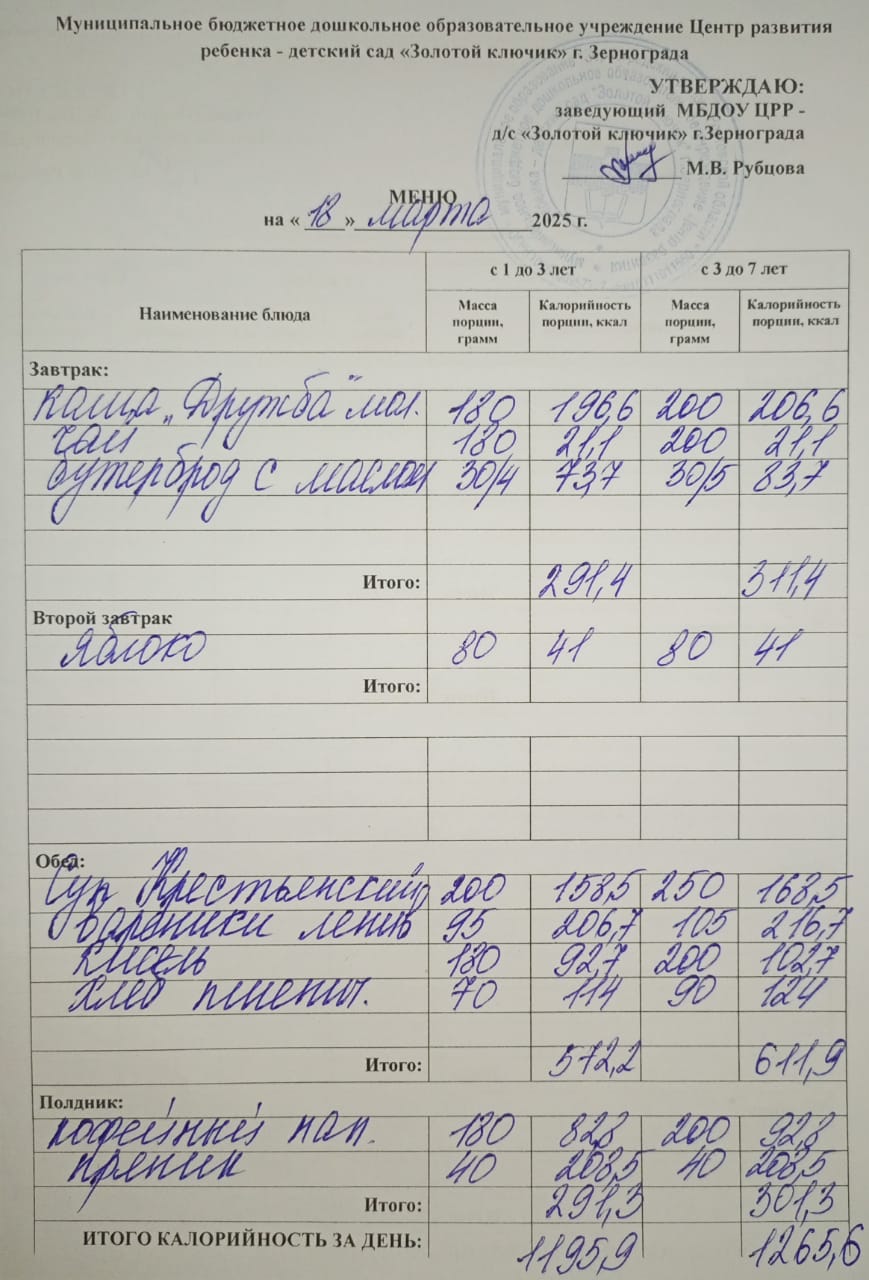 Муниципальное бюджетное дошкольное образовательное учреждение Центр развития
ребенка - детский сад «Золотой ключик» г. Зернограда
УТВЕРЖДАЮ:
заведующий МБДОУ ЦРР -
д/с «Золотой ключик» г.Зернограда
М.В. Рубцова
МЕНЮ
на « 18 » марта 2025 г.
Наименование блюда с 1 до 3 лет с 3 до 7 лет
Масса порции, грамм Калорийность порции, ккал Масса порции, грамм Калорийность порции, ккал
Завтрак:
Каша „Дружба" мол. 180 196,6 200 206,6
чай 180 21,1 200 21,1
бутерброд с маслом 30/4 73,7 30/5 83,7
Итого: 291,4 311,4
Второй завтрак
Яблоко 80 41 80 41
Итого:
Обед:
Суп Крестьянский 200 158,5 250 168,5
вареники ленив 95 206,7 105 216,7
кисель 180 92,7 200 102,7
хлеб пшенич. 70 114 90 124
Итого: 572,2 611,9
Полдник:
кофейный нап. 180 82,8 200 92,8
пряник 40 208,5 40 208,5
Итого: 291,3 301,3
ИТОГО КАЛОРИЙНОСТЬ ЗА ДЕНЬ: 1195,9 1265,6